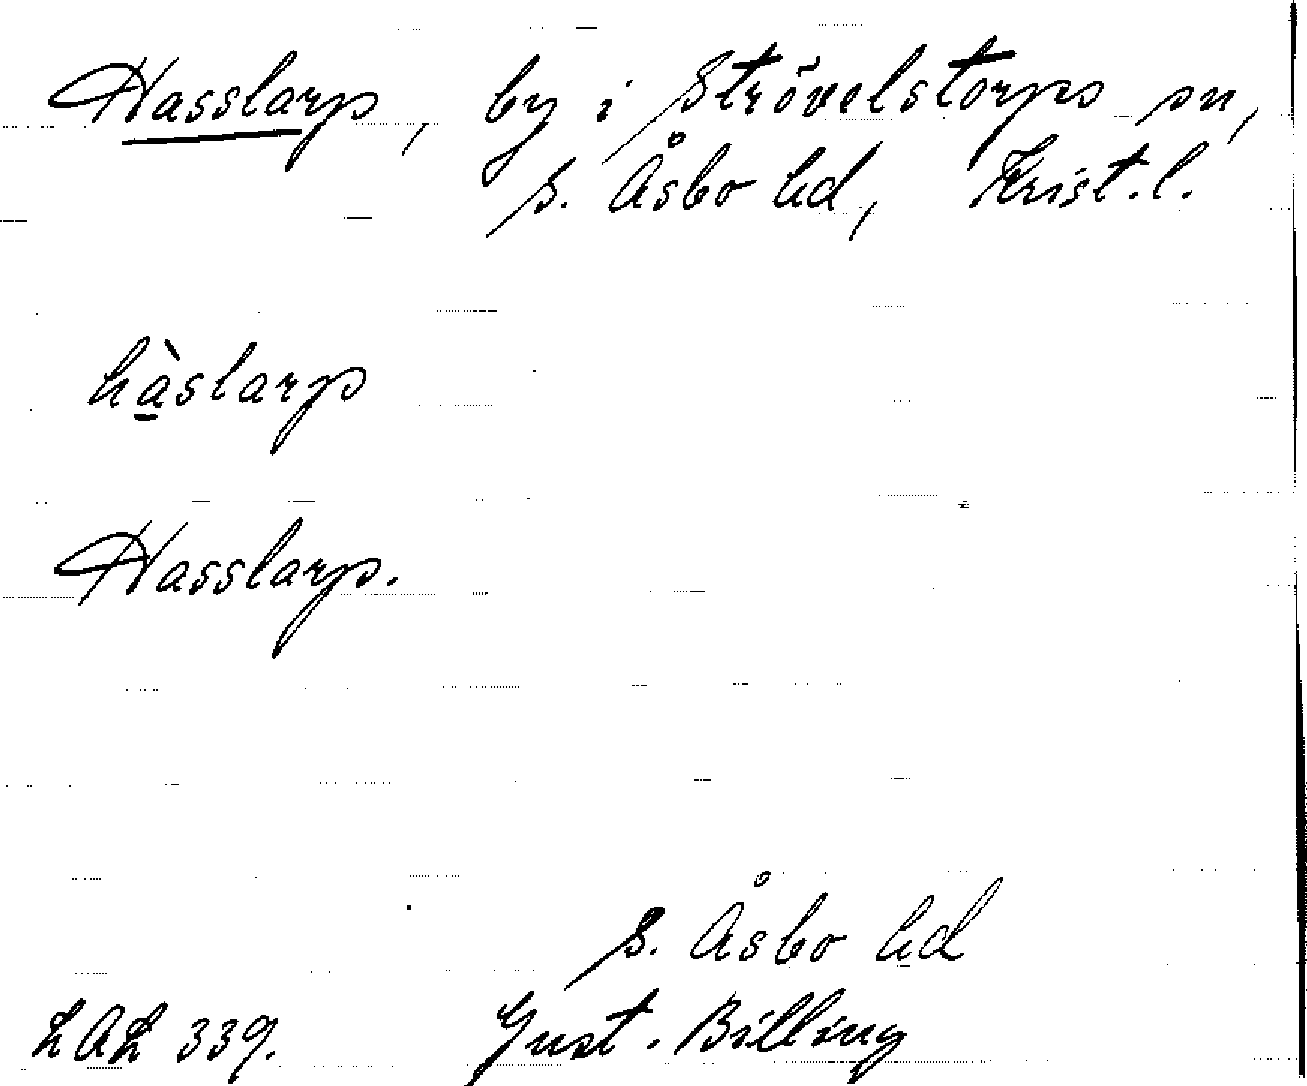 Hasslarp, by i Strövelstorps sn,
S. Åsbo hd, Krist.l.
hàslarp
Hasslarp.
S. Åsbo hd
LAL 339. Gust. Billing